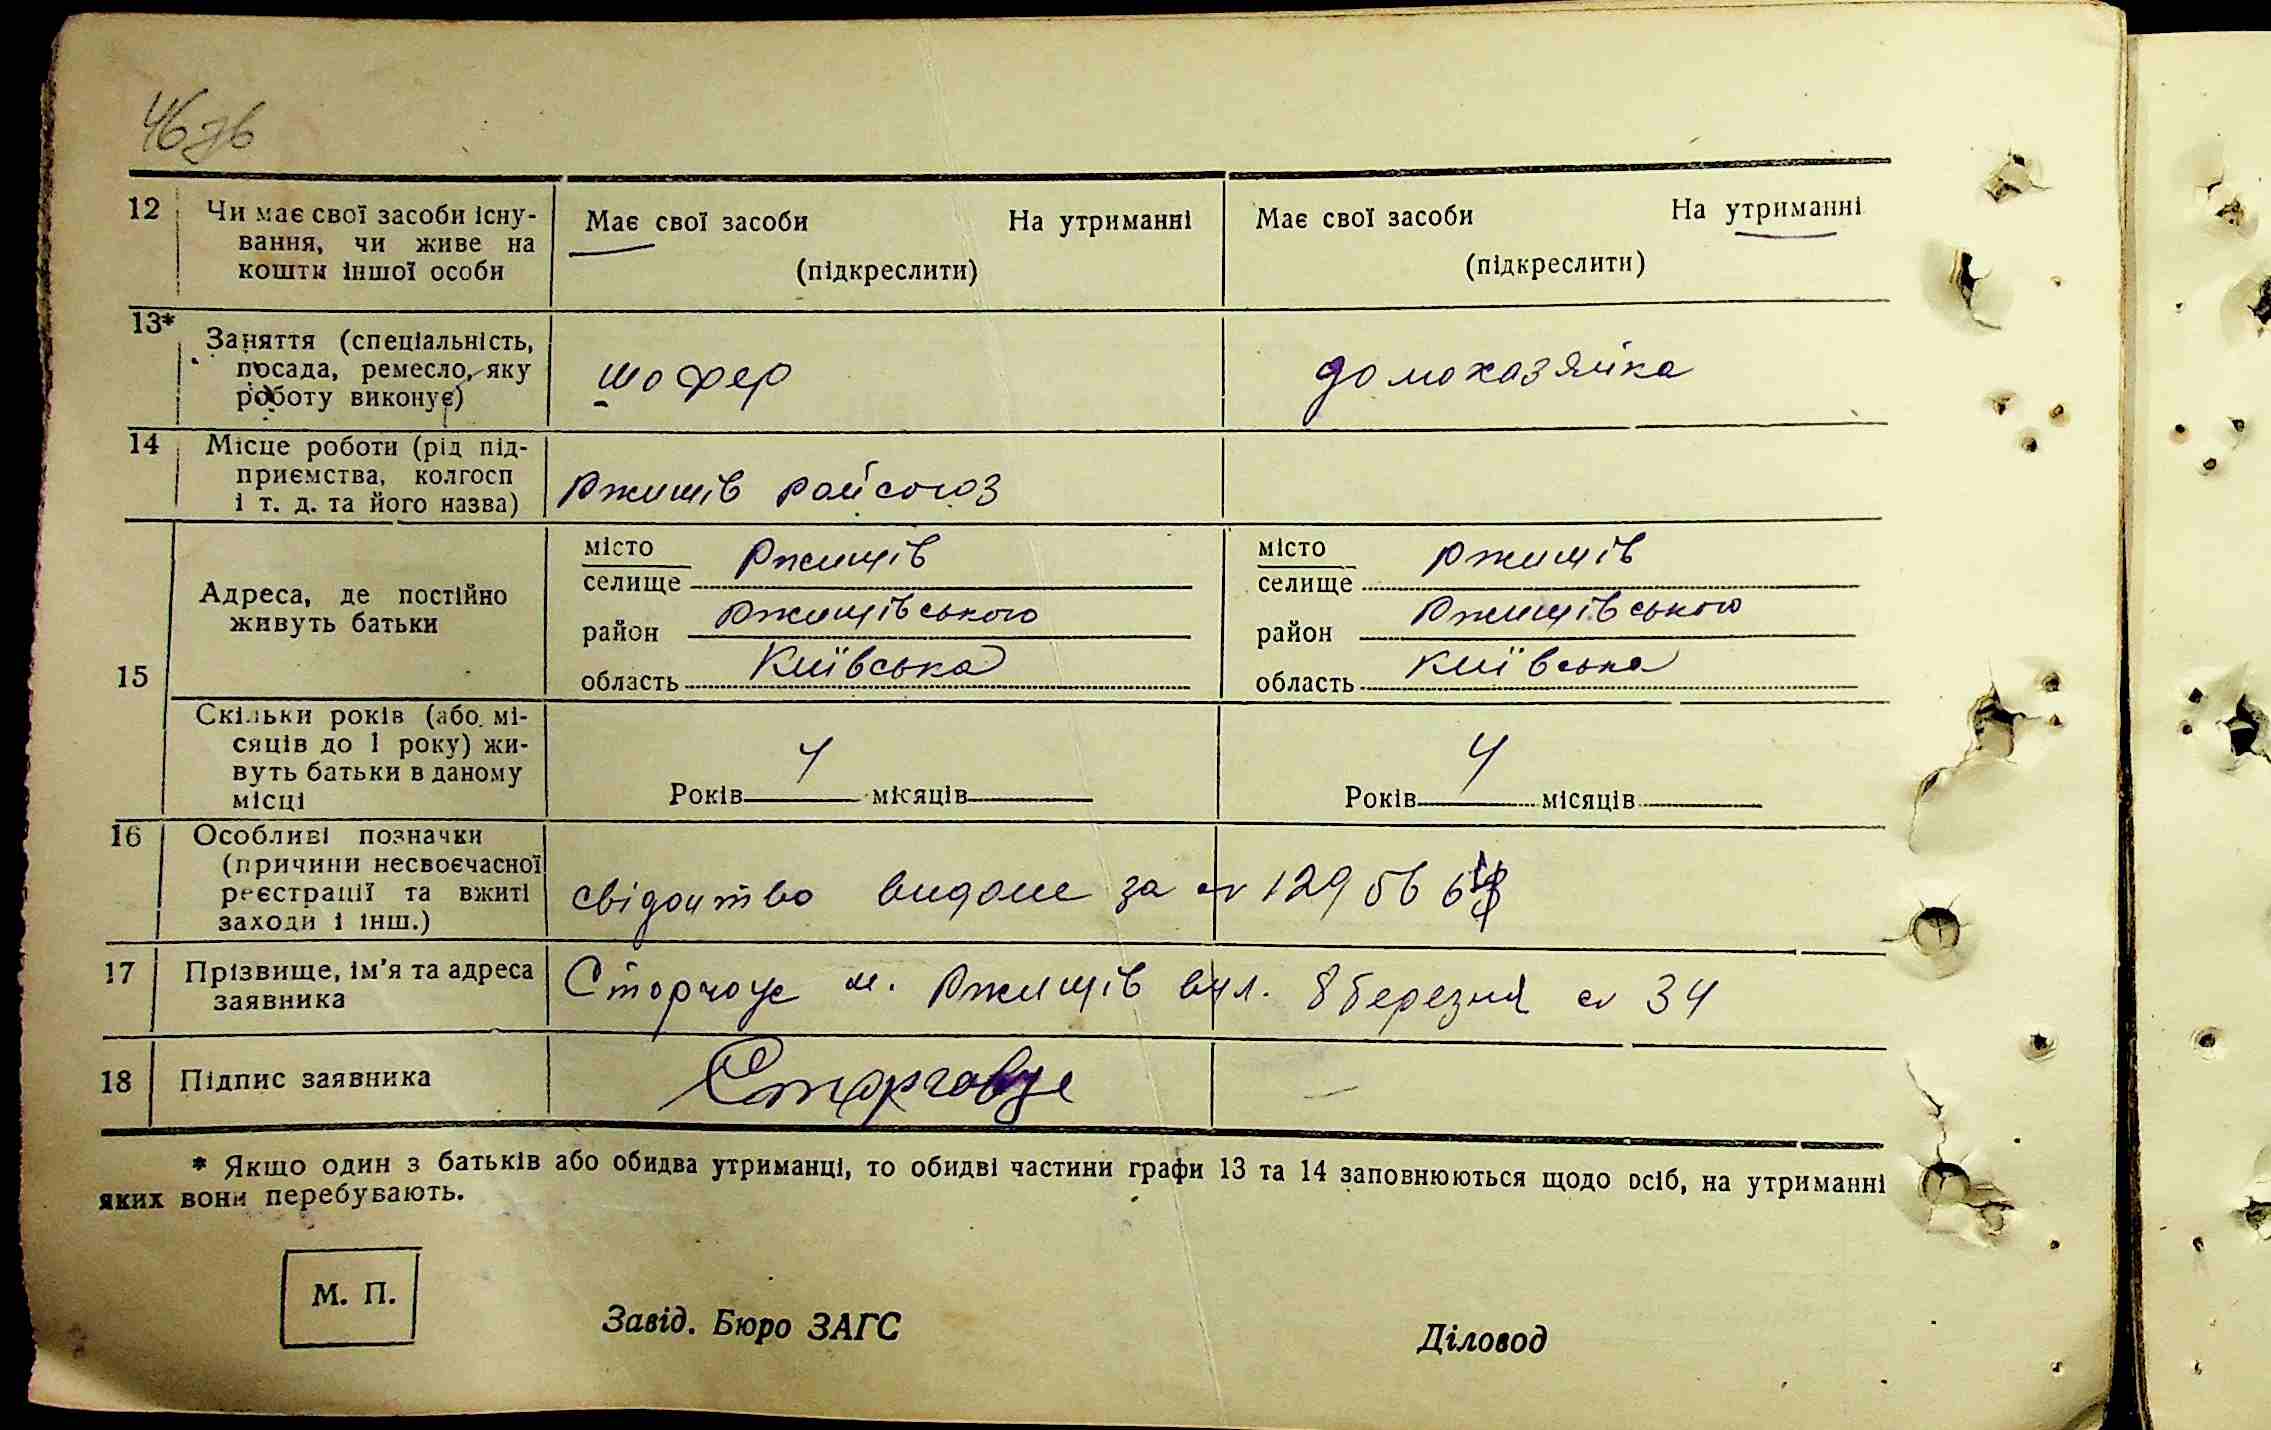 46 зв
12 Чи має свої засоби існу- Має свої засоби На утриманні Має свої засоби На утриманні
вання, чи живе на
кошти іншої особи (підкреслити) (підкреслити)
13* Заняття (спеціальність,
посада, ремесло, яку шофер домохазяйка
роботу виконує)
14 Місце роботи (рід під-
приємства, колгосп Ржищів райсоюз
і т. д. та його назва)
15 Адреса, де постійно
живуть батьки
місто Ржищів місто Ржищів
селище селище
район Ржищівського район Ржищівського
область Київська область Київська
Скільки років (або мі-
сяців до 1 року) жи-
вуть батьки в даному
місці
Років 4 місяців Років 4 місяців
16 Особливі позначки
(причини несвоєчасної
реєстрації та вжиті свідоцтво видане за № 129
заходи і інш.)
17 Прізвище, ім'я та адреса м. Ржищів вул. 8 березня № 34
заявника
18 Підпис заявника
* Якщо один з батьків або обидва утриманці, то обидві частини графи 13 та 14 заповнюються щодо осіб, на утриманні
яких вони перебувають.
М. П.
Завід. Бюро ЗАГС Діловод